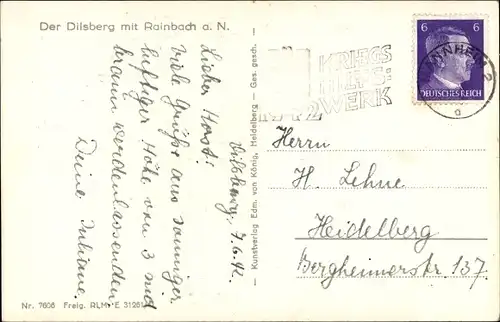 Der Dilsberg mit Rainbach a. N.
Dilsberg, 7.6.42.
Lieber Horst!
Viele Grüße aus sonniger
luftiger Höhe von 3 sich
braun werdenlassenden
Deine
Kunstverlag Edm. von König, Heidelberg - Ges. gesch.
KRIEGS
HILFS:
WERK
1942
6 6
DEUTSCHES REICH
2
a
Herrn
H. Lehne
Heidelberg
Bergheimerstr. 137.
Nr. 7606 Freig. RLM E